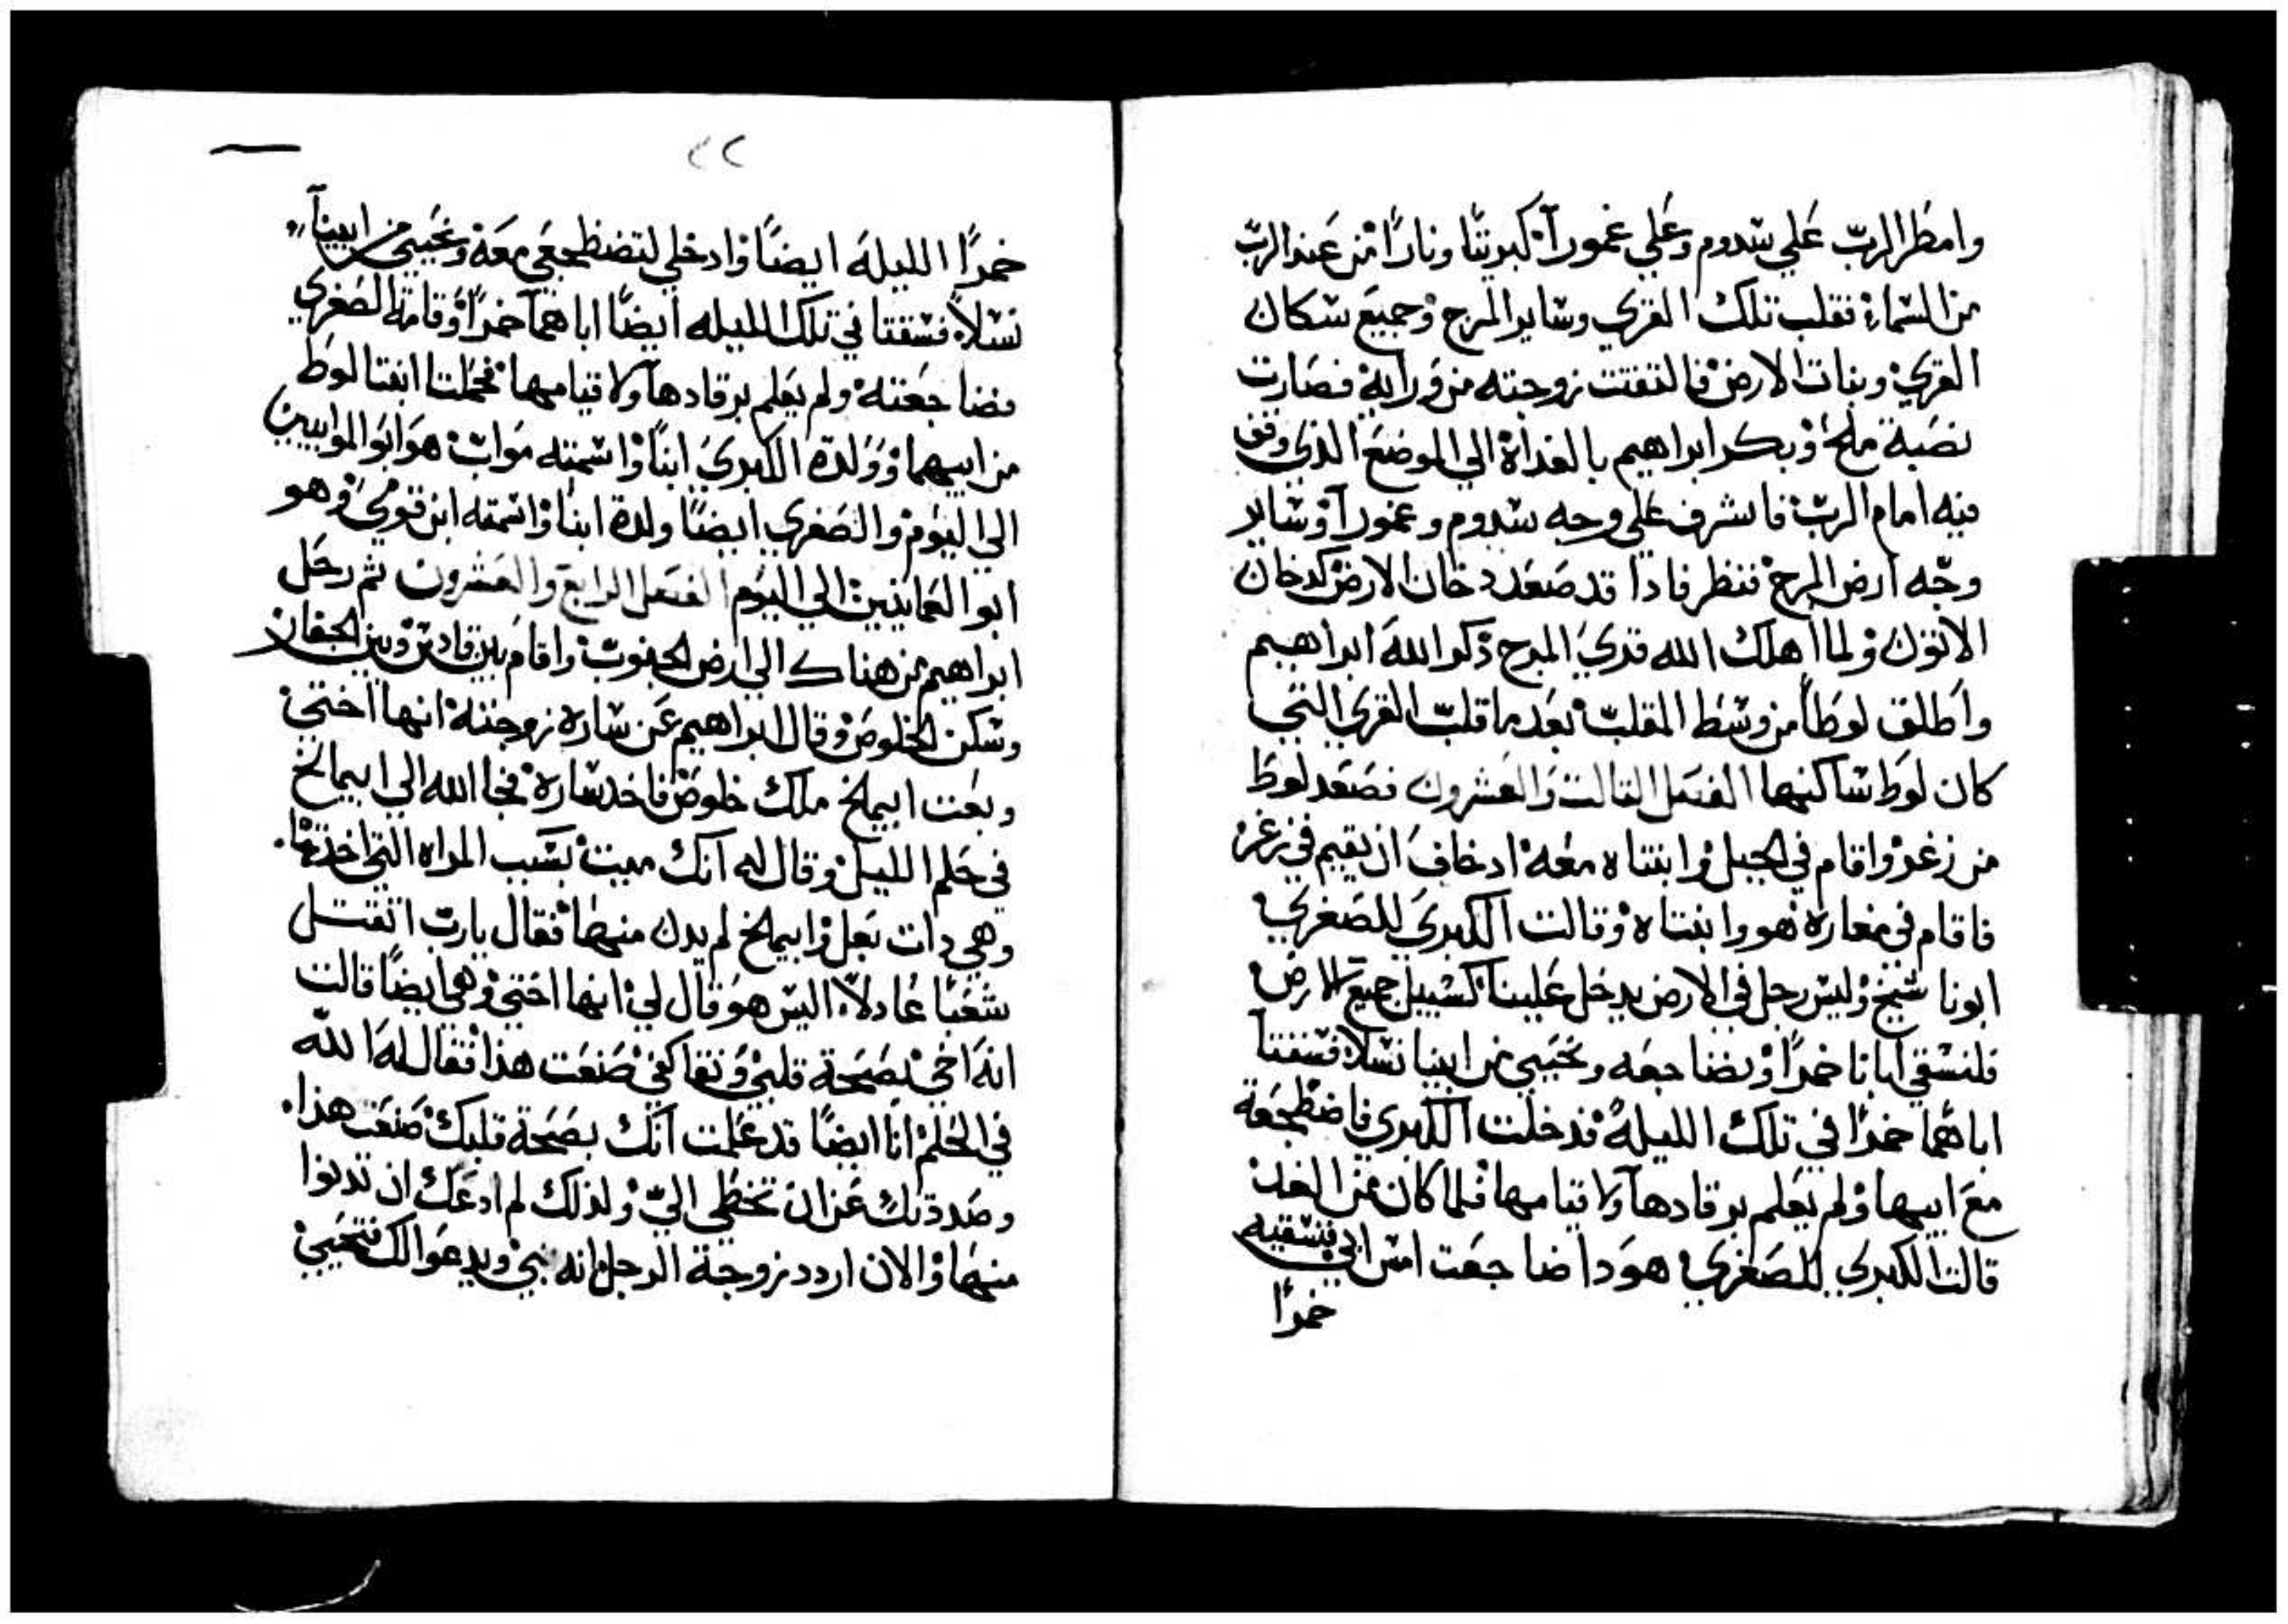 وامطر الرب علي سدوم وعلي غمورا كبريتا ونارا من عند الرب
من السماء فقلب تلك القري وساير المرج وجميع سكان
القري ونبات الارض فالتفتت زوجته من ورايه فصارت
نصبة ملح وبكر ابراهيم بالغداة الي الموضع الذي وقف
فيه امام الرب فاشرف علي وجه سدوم وغمورا وساير
وجه ارض المرج فنظر فادا قد صعد دخان الارض كدخان
الاتون ولما اهلك الله قري المرج ذكر الله ابراهيم
واطلق لوطا من وسط المقلب بعد ما قلب القري التي
كان لوط ساكنها الفصل التالت والعشرون فصعد لوط
من زغر واقام في الجبل وابنتاه معه اد خاف ان يقيم في زغر
فاقام في مغاره هو وابنتاه وقالت الكبري للصغري
ابونا شيخ وليس رجل في الارض يدخل علينا كسبيل جميع الارض
فلنسقي ابانا خمرا ونضاجعه ونحيي من ابينا نسلا فسقتا
اباهما خمرا في تلك الليلة فدخلت الكبري فاضطجعة
مع ابيها ولم يعلم برقادها ولا قيامها فلما كان من الغد
قالت الكبري للصغري هودا ضاجعت امس ابي فنسقيه
خمرا
٢٢
خمرا الليلة ايضا وادخلي لتضطجعي معه ونحيي من ابينا
نسلا فسقتا في تلك الليله ايضا اباهما خمرا وقامة الصغري
فضاجعته ولم يعلم برقادها ولا قيامها فحملتا ابنتا لوط
من ابيهما وولدة الكبري ابنا واسمته مواب هو ابو الموابيين
الي اليوم والصغري ايضا ولدة ابنا واسمته ابن قومي وهو
ابو العمانيين الي اليوم الفصل الرابع والعشرون ثم رحل
ابراهيم من هناك الي ارض الجنوب واقام بين قادس وبين الجفار
وسكن الخلوص وقال ابراهيم عن ساره زوجته انها اختي
وبعت ابيمالخ ملك خلوص فاخد ساره فجا الله الي ابيمالخ
في حلم الليل وقال له انك ميت بسبب المراه التي اخدتها
وهي دات بعل وابيمالخ لم يدن منها فقال يارب اتقتل
شعبا عادلا اليس هو قال لي انها اختي وهي ايضا قالت
انه اخي بصحة قلبي ونقا كفي صنعت هذا فقال له الله
في الحلم انا ايضا قد علمت انك بصحة قلبك صنعت هذا
وصددتك عن ان تخطي الي ولذلك لم ادعك ان تدنوا
منها والان اردد زوجة الرجل انه نبي ويدعوا لك فتحيي